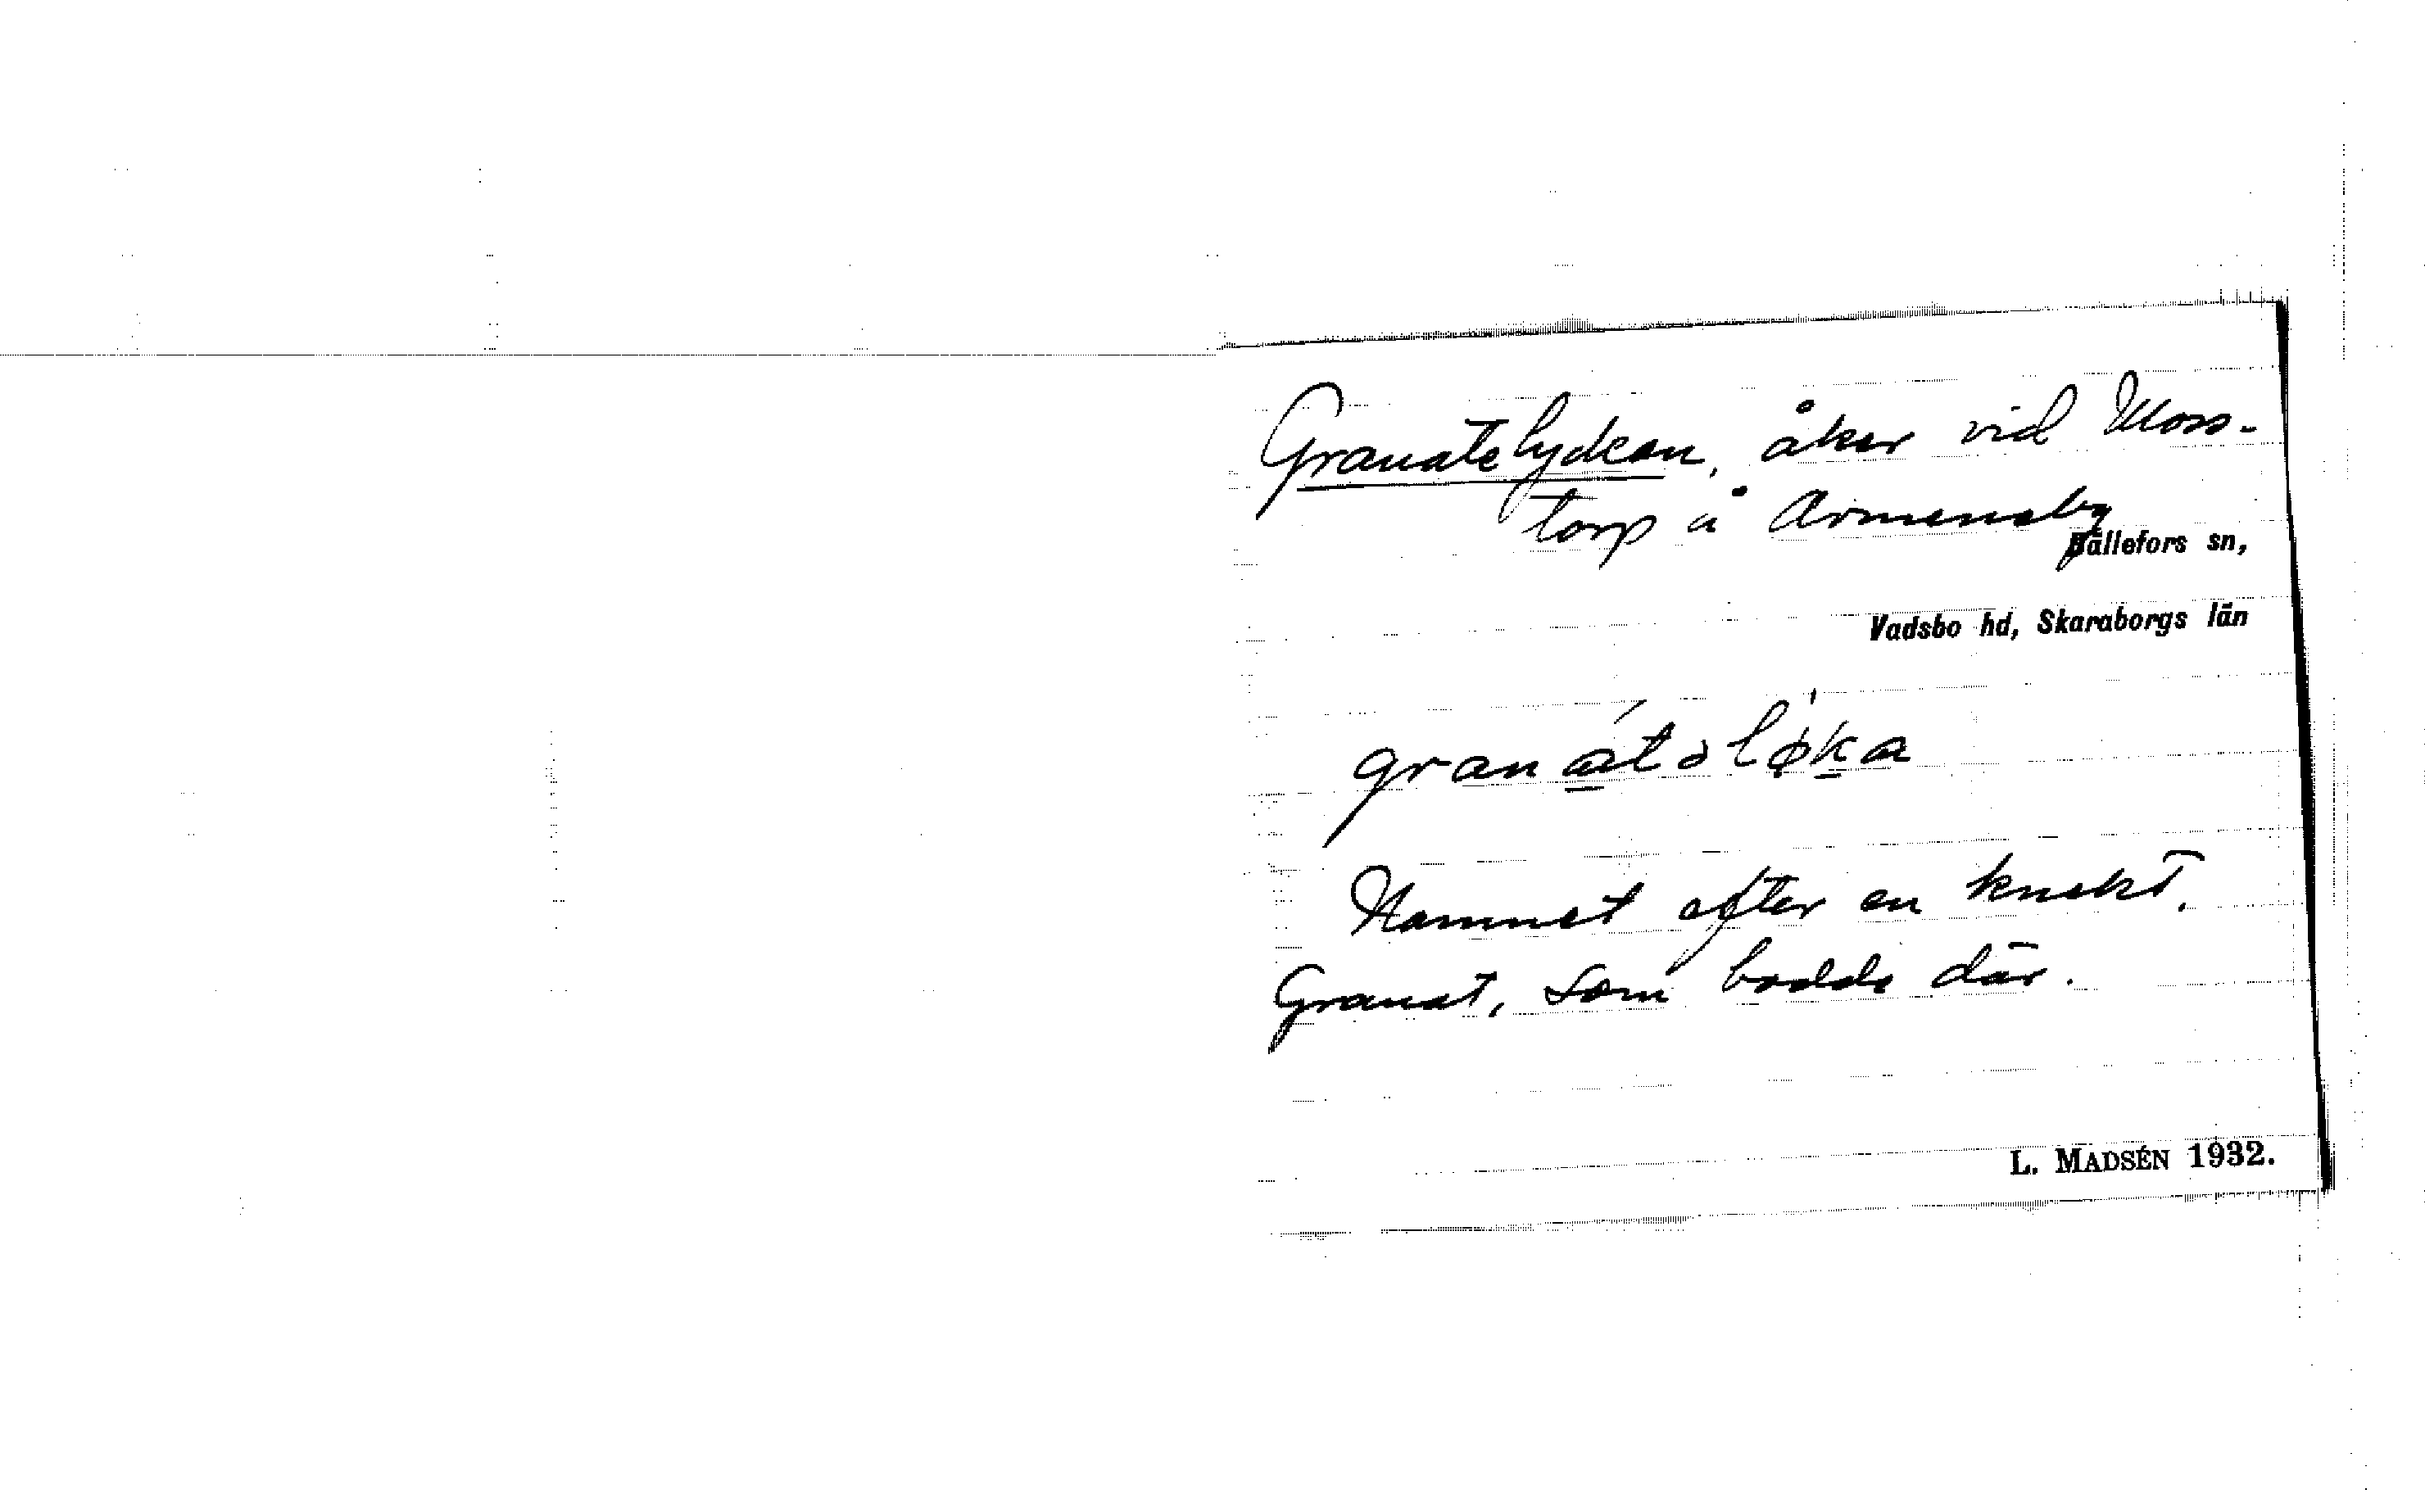 Granatelyckan, åker vid Moss-
torp å Armensby
Bällefors sn,
Vadsbo hd, Skaraborgs län
granátəlø̀ka
Namnet efter en knekt,
Granat, som bodde där.
L. MADSÉN 1932.